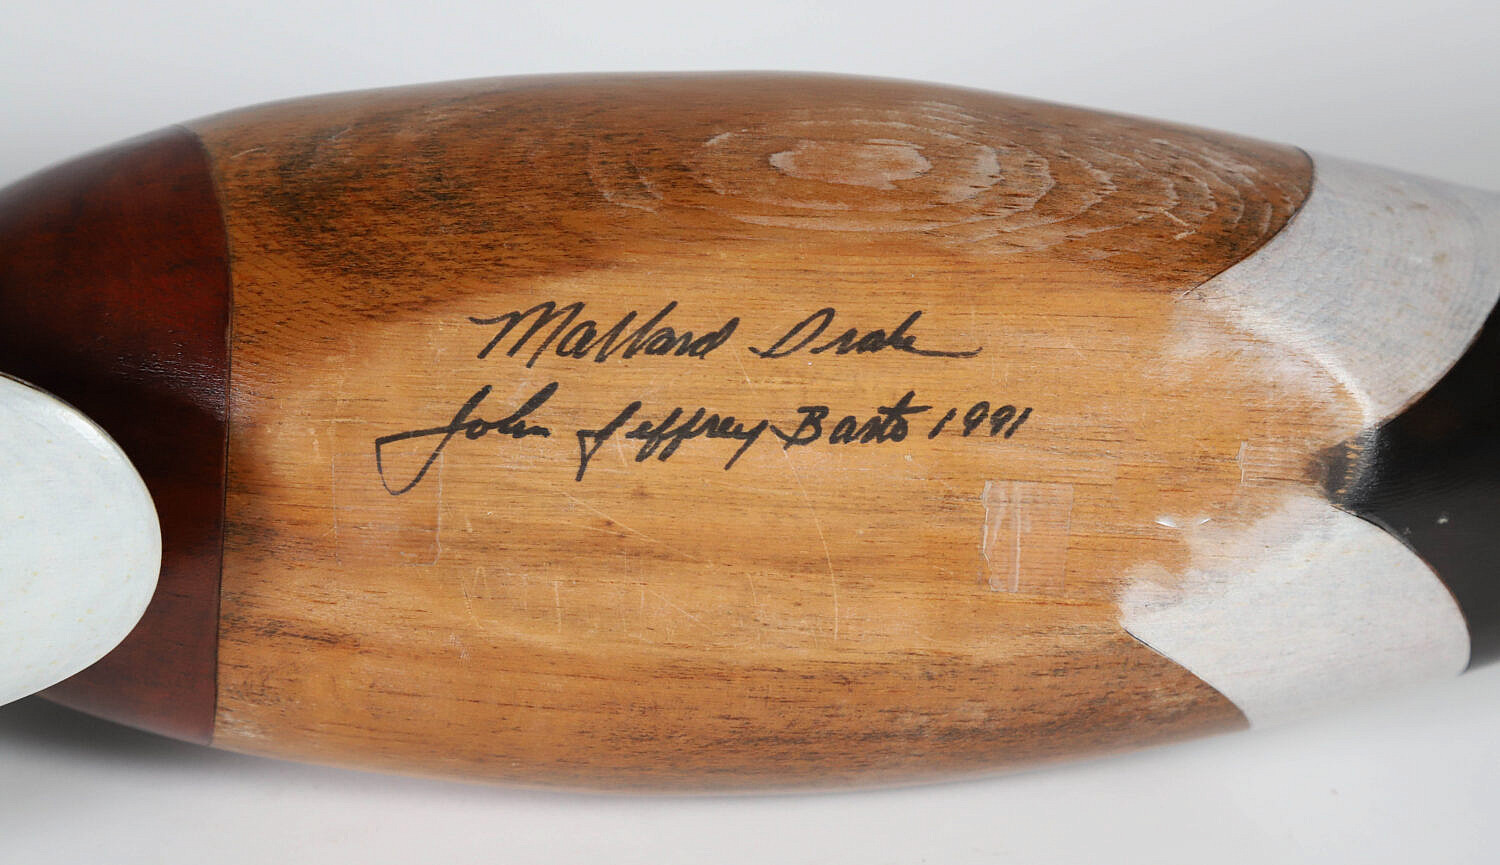 Mallard Drake
John Jeffrey Basto 1991